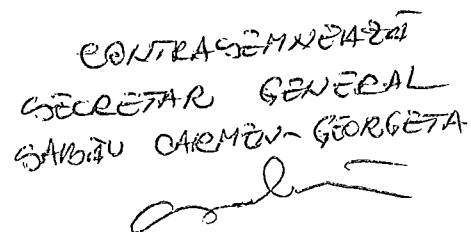 CONTRASEMNEAZĂ
SECRETAR GENERAL
SABĂU CARMEN-GEORGETA